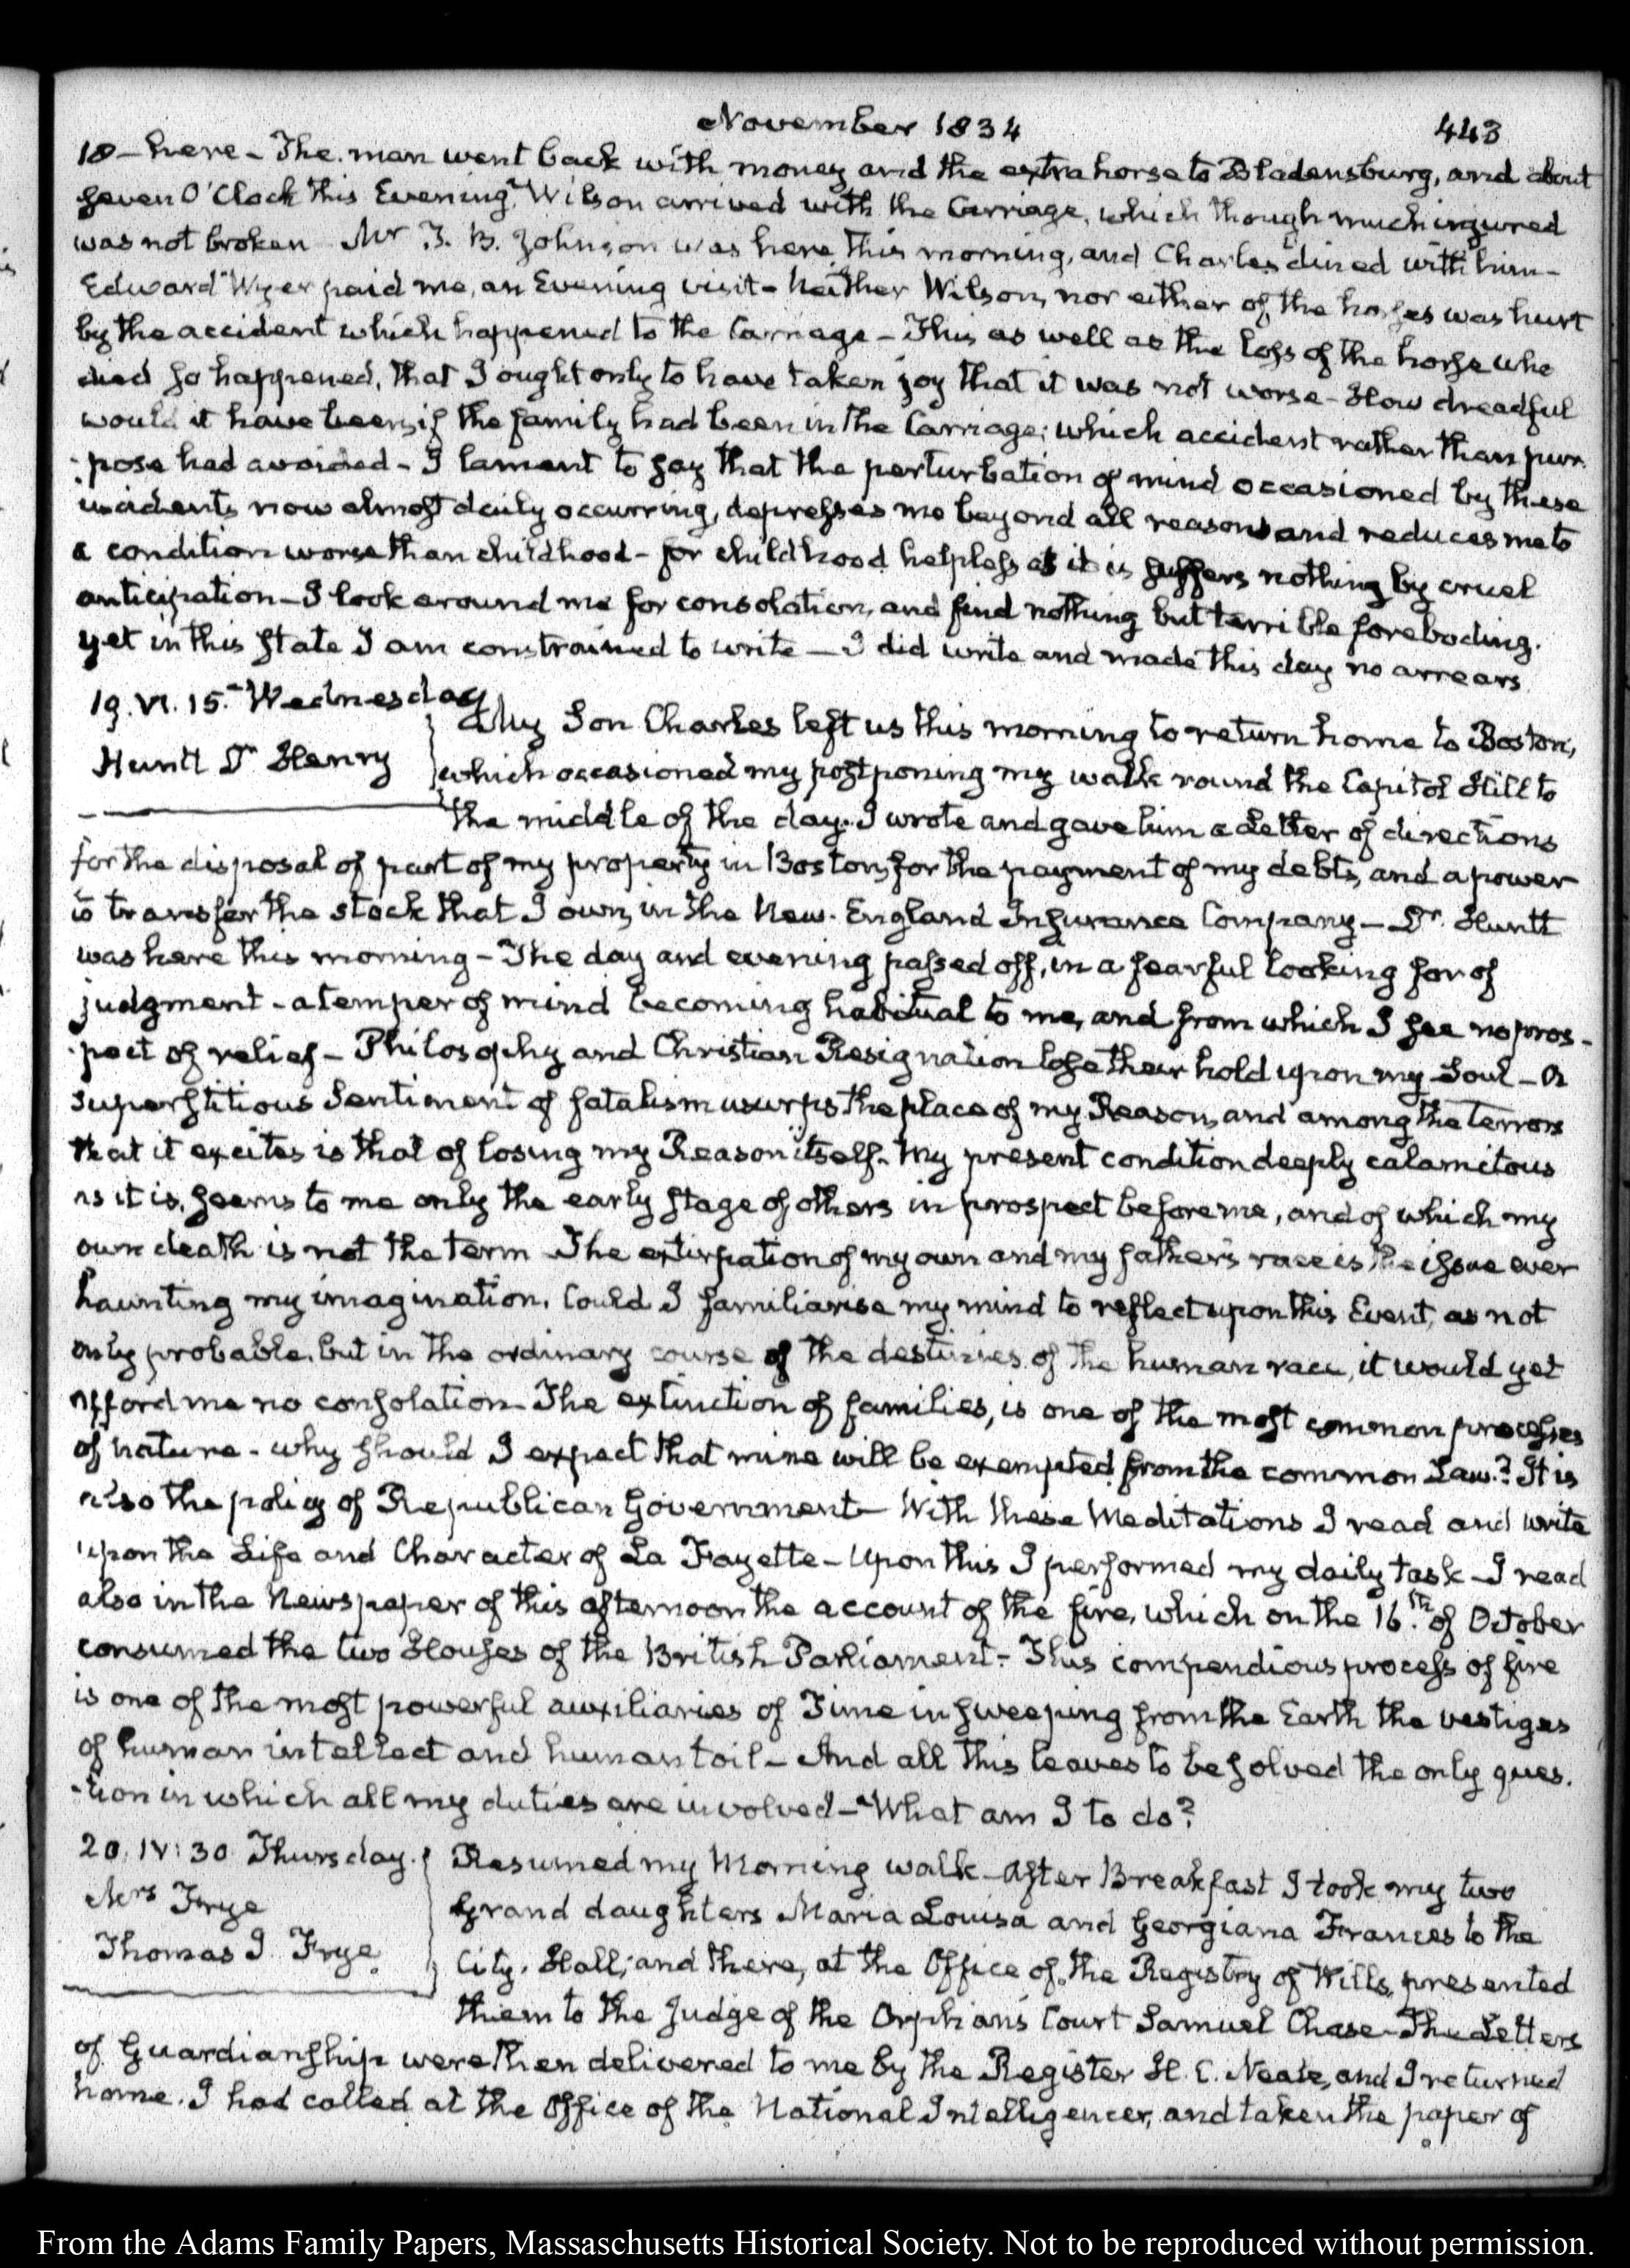 November 1834
443
18 – here – The man went back with money and the extra horse to Bladensburg, and about
seven O'Clock this Evening, Wilson arrived with the Carriage, which though much injured
was not broken – Mr J. B. Johnson was here this morning, and Charles dined with him –
Edward Wyer paid me, an Evening visit – Neither Wilson, nor either of the horses was hurt
by the accident which happened to the Carriage – This as well as the loss of the horse who
died so happened, that I ought only to have taken joy that it was not worse – How dreadful
would it have been, if the family had been in the Carriage; which accident rather than pur-
-pose had avoided – I lament to say that the perturbation of mind occasioned by these
incidents now almost daily occurring, depresses me beyond all reason and reduces me to
a condition worse than childhood – for childhood helpless as it is suffers nothing by cruel
anticipation – I look around me for consolation, and find nothing but terrible foreboding.
yet in this state I am constrained to write – I did write and made this day no arrears
19. VI. 15. Wednesday
Huntt Dr Henry
My Son Charles left us this morning to return home to Boston,
which occasioned my postponing my walk round the Capitol Hill to
the middle of the day. I wrote and gave him a Letter of directions
for the disposal of part of my property in Boston, for the payment of my debts, and a power
to transfer the stock that I own, in the New-England Insurance Company – Dr. Huntt
was here this morning – The day and evening passed off, in a fearful looking for of
judgment – a temper of mind becoming habitual to me, and from which I see no pros-
-pect of relief – Philosophy and Christian Resignation lose their hold upon my Soul – A
superstitious Sentiment of fatalism usurps the place of my Reason, and among the terrors
that it excites is that of losing my Reason itself. My present condition deeply calamitous
as it is, seems to me only the early stage of others in prospect before me, and of which my
own death is not the term The extirpation of my own and my father's race is the issue ever
haunting my imagination. Could I familiarise my mind to reflect upon this Event, as not
only probable, but in the ordinary course of the destinies of the human race, it would yet
afford me no consolation – The extinction of families, is one of the most common processes
of nature – why should I expect that mine will be exempted from the common Law? It is
also the policy of Republican Government – With these Meditations I read and write
upon the Life and Character of La Fayette – Upon this I performed my daily task – I read
also in the Newspaper of this afternoon the account of the fire, which on the 16th. of October
consumed the two Houses of the British Parliament – This compendious process of fire
is one of the most powerful auxiliaries of Time in sweeping from the Earth the vestiges
of human intellect and human toil – And all this leaves to be solved the only ques-
-tion in which all my duties are involved – What am I to do?
20. IV: 30 Thursday.
Mrs Frye
Thomas J. Frye
Resumed my Morning walk – After Breakfast I took my two
Grand daughters Maria Louisa and Georgiana Frances to the
City-Hall; and there, at the Office of the Registry of Wills, presented
them to the Judge of the Orphans Court Samuel Chase – The Letters
of Guardianship were then delivered to me by the Register H. C. Neale, and I returned
home. I had called at the Office of the National Intelligencer, and taken the paper of
From the Adams Family Papers, Massachusetts Historical Society. Not to be reproduced without permission.